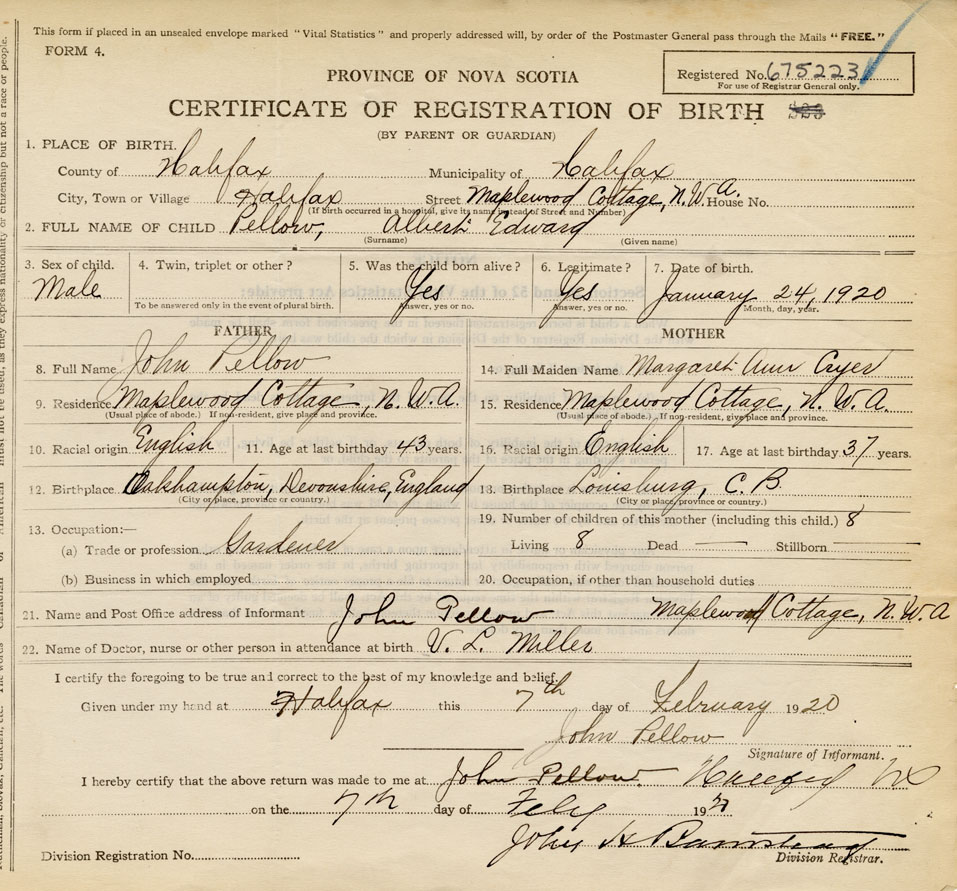 This form if placed in an unsealed envelope marked "Vital Statistics" and properly addressed will, by order of the Postmaster General pass through the Mails "FREE."
FORM 4.
Registered No. 675223
For use of Registrar General only.
PROVINCE OF NOVA SCOTIA
CERTIFICATE OF REGISTRATION OF BIRTH
(BY PARENT OR GUARDIAN)
1. PLACE OF BIRTH.
County of Halifax Municipality of Halifax
City, Town or Village Halifax Street Maplewood Cottage, N.W.A. House No.
(If birth occurred in a hospital, give its name instead of Street and Number)
2. FULL NAME OF CHILD Pellow, Albert Edward
(Surname) (Given name)
3. Sex of child. 4. Twin, triplet or other? 5. Was the child born alive? 6. Legitimate? 7. Date of birth.
Male Yes Yes January 24, 1920
To be answered only in the event of plural birth. Answer, yes or no. Answer, yes or no. Month, day, year.
FATHER MOTHER
8. Full Name John Pellow 14. Full Maiden Name Margaret Ann Cryer
9. Residence Maplewood Cottage, N.W.A. 15. Residence Maplewood Cottage, N.W.A.
(Usual place of abode.) If non-resident, give place and province. (Usual place of abode.) If non-resident, give place and province.
10. Racial origin English 11. Age at last birthday 43 years. 16. Racial origin English 17. Age at last birthday 37 years.
12. Birthplace Oakhampton, Devonshire, England 18. Birthplace Louisburg, C.B.
(City or place, province or country.) (City or place, province or country.)
13. Occupation:— 19. Number of children of this mother (including this child.) 8
(a) Trade or profession Gardener Living 8 Dead — Stillborn —
(b) Business in which employed 20. Occupation, if other than household duties
21. Name and Post Office address of Informant John Pellow Maplewood Cottage, N.W.A
22. Name of Doctor, nurse or other person in attendance at birth V. L. Miller
I certify the foregoing to be true and correct to the best of my knowledge and belief.
Given under my hand at Halifax this 7th day of February 1920
John Pellow
Signature of Informant.
I hereby certify that the above return was made to me at John Pellow
on the 7th day of Feby 19
John H
Division Registration No. Division Registrar.